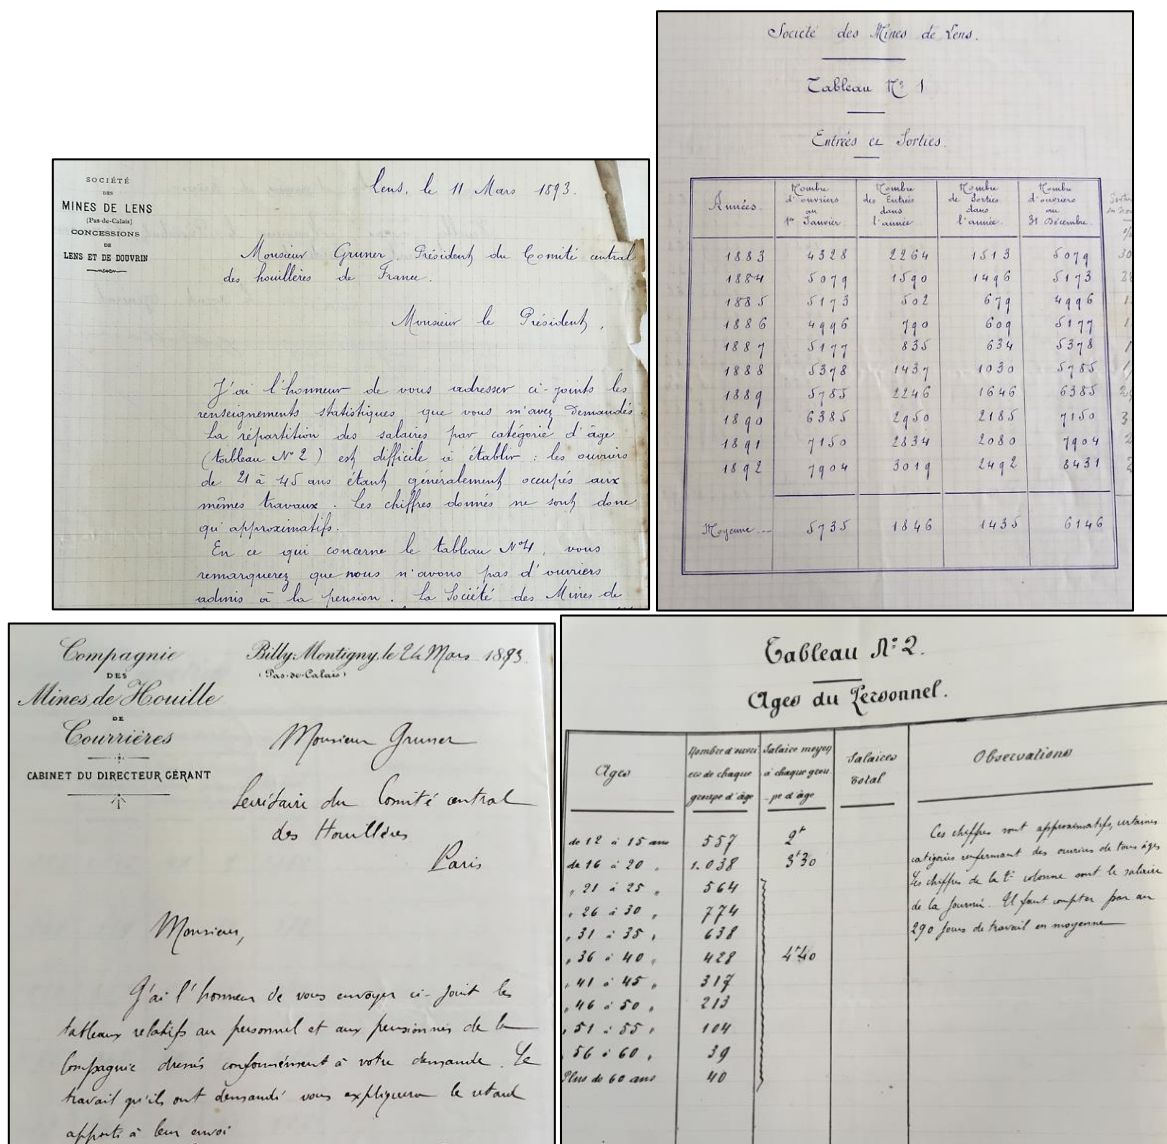 SOCIÉTÉ
DES
MINES DE LENS
(Pas-de-Calais)
CONCESSIONS
DE
LENS ET DE DOUVRIN
Lens, le 11 Mars 1893.
Monsieur Gruner Président du Comité central
des houillères de France.
Monsieur le Président,
J'ai l'honneur de vous adresser ci-joints les
renseignements statistiques que vous m'avez demandés
La répartition des salaires par catégorie d'âge
(tableau N° 2) est difficile à établir : les ouvriers
de 21 à 45 ans étant généralement occupés aux
mêmes travaux. Les chiffres donnés ne sont donc
qu'approximatifs.
En ce qui concerne le tableau N°4, vous
remarquerez que nous n'avons pas d'ouvriers
admis à la pension. La Société des Mines de
Société des Mines de Lens.
Tableau N° 1
Entrées et Sorties.
Années. Nombre d'ouvriers au 1er Janvier Nombre des Entrées dans l'année. Nombre de Sorties dans l'année. Nombre d'ouvriers au 31 Décembre.
1883 4328 2264 1513 5079
1884 5079 1590 1496 5173
1885 5173 502 679 4996
1886 4996 790 609 5177
1887 5177 835 634 5378
1888 5378 1437 1030 5785
1889 5785 2246 1646 6385
1890 6385 2950 2185 7150
1891 7150 2834 2080 7904
1892 7904 3019 2492 8431
Moyenne 5735 1846 1435 6146
Compagnie
DES
Mines de Houille
DE
Courrières
CABINET DU DIRECTEUR GÉRANT
Billy-Montigny, le 24 Mars 1893.
(Pas-de-Calais)
Monsieur Gruner
Secrétaire du Comité central
des Houillères
Paris
Monsieur,
J'ai l'honneur de vous envoyer ci-joint les
tableaux relatifs au personnel et aux pensionnés de la
Compagnie dressés conformément à votre demande. Le
travail qu'ils ont demandé vous expliquera le retard
apporté à leur envoi
Tableau N° 2.
Ages du Personnel.
Ages Nombre d'ouvriers de chaque groupe d'âge Salaire moyen à chaque groupe d'âge Salaires total Observations
de 12 à 15 ans 557 2f
de 16 à 20 " 1.038 3f30
" 21 à 25 " 564
" 26 à 30 " 774
" 31 à 35 " 638
" 36 à 40 " 428 4f40
" 41 à 45 " 317
" 46 à 50 " 213
" 51 à 55 " 104
" 56 à 60 " 39
Plus de 60 ans 40
Ces chiffres sont approximatifs, certaines
catégories renfermant des ouvriers de tous âges
Les chiffres de la 2e colonne sont le salaire
de la journée. Il faut compter par an
290 jours de travail en moyenne